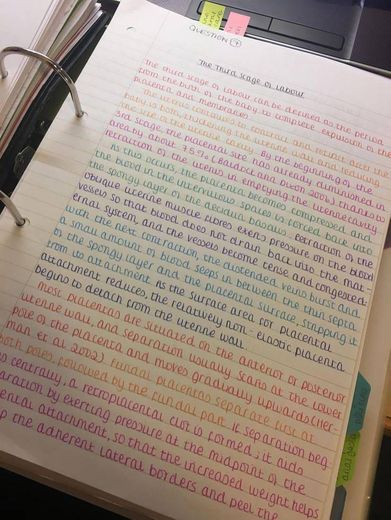 QUESTION 7
The Third Stage of Labour
The third stage of labour can be defined as the period
from the birth of the baby to complete expulsion of the
placenta and membranes.
The uterus continues to contract and retract over the
baby's body, thickening the uterine wall and reducing
the size of the uterine cavity. By the beginning of the
3rd stage, the placental site has already diminished in
area by about 75% (Baldock and Dixon 2006) thanks to
retraction of the uterus in emptying the uterine cavity.
As this occurs, the placenta becomes compressed and
the blood in the intervillous spaces is forced back into
the spongy layer of the decidua basalis. Retraction of the
oblique uterine muscle fibres exerts pressure on the blood
vessels so that blood does not drain back into the mat-
ernal system, and the vessels become tense and congested.
With the next contraction, the distended veins burst and
a small amount of blood seeps in between the thin septa
of the spongy layer and the placental surface, stripping it
from its attachment. As the surface area for placental
attachment reduces, the relatively non-elastic placenta
begins to detach from the uterine wall.
Most placentas are situated on the anterior or posterior
uterine wall, and separation usually starts at the lower
pole of the placenta and moves gradually upwards (Her-
man et al 2002). Fundal placentas separate first at
both poles, followed by the fundal part. If separation beg-
s centrally, a retroplacental clot is formed; it aids
aration by exerting pressure at the midpoint of the
ental attachment, so that the increased weight helps
p the adherent lateral borders and peel the